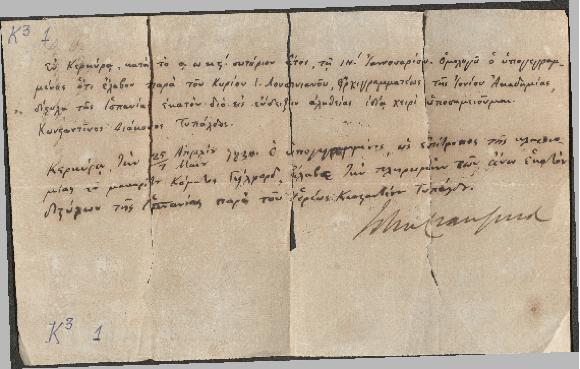 Κ³ 1
Ἐν Κερκύρᾳ, κατὰ τὸ σωτήριον ἔτος, τῇ ιη΄ Ἰαννουαρίου. Ὁμολογῶ ὁ ὑπογεγραμ-
μένος ὅτι ἔλαβον παρὰ τοῦ Κυρίου Ι. Λουσινιανοῦ, Ἀρχιγραμματέως τῆς Ἰονίου Ἀκαδημίας,
δίστηλα τῆς Ἱσπανίας ἑκατὸν δύο εἰς ἔνδειξιν ἀληθείας ἰδίᾳ χειρὶ ὑποσημειοῦμαι.
Κωνσταντῖνος Διάκονος Τυπάλδος.
Κερκύρᾳ, τὴν 25 Ἀπριλίου 7 Μαΐου ὁ ὑπογεγραμμένος, ὡς ἐπίτροπος τῆς κληρονο-
μίας τοῦ μακαρίτου Κόμητος Γυίλφορδ, ἔλαβε τὴν πληρωμὴν τῶν ἄνω ἑκατὸν
διστήλων τῆς Ἱσπανίας παρὰ τοῦ Ἱερέως Κωνσταντίνου Τυπάλδου.
John Crawford
Κ³ 1